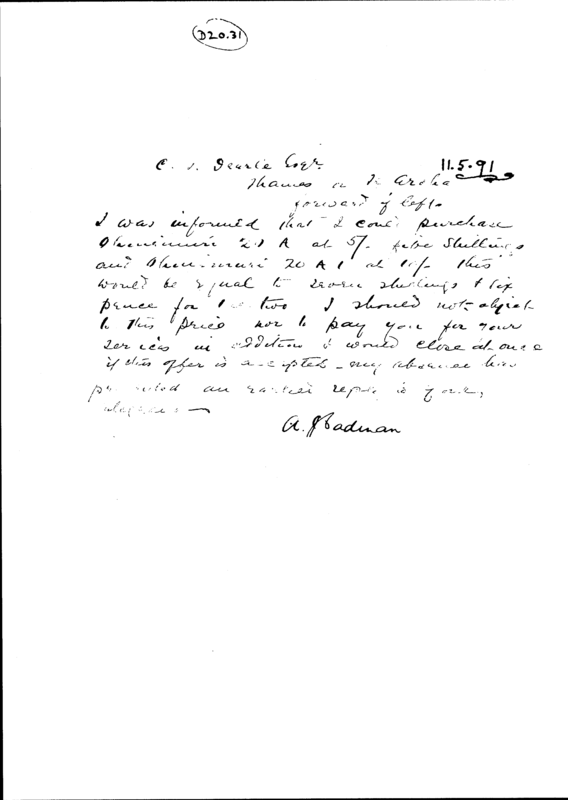 D20.31
11.5.91
C. J. Dearle Esqr
Thames or Te Aroha
forward if left
I was informed that I could purchase
Ohinemuri 20 A at 5/- five Shillings
and Ohinemuri 20 A 1 at 10/- this
would be equal to seven shillings & six
pence for the two I should not object
to this price nor to pay you for your
services in addition & would close at once
if this offer is accepted - my absence has
prevented an earlier reply to your
A. J Cadman